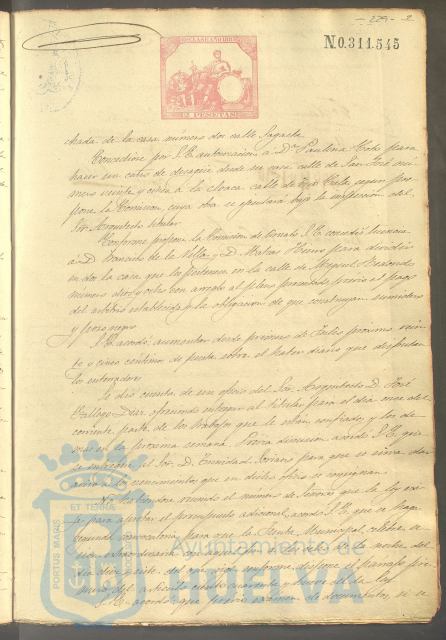 229 - 2
N0.311.545
12 PESETAS
chada de la casa número dos calle Sagasta
Concedióse por S.E. autorización a D.ª Paulina para
hacer un caño de desagüe desde su casa calle de San José nú-
mero veinte y cinco a la cloaca calle de según pro-
pone la Comisión, cuya obra se ejecutará bajo la inspección del
Sor. Arquitecto titular
Conforme propone la Comisión de Ornato S.E. concedió licencia
a D. Francisco de la Villa y D. Matías para dividir
en dos la casa que les pertenece en la calle de Miguel Redondo
número diez y ocho con arreglo al plano presentado previo el pago
del arbitrio establecido y la obligación de que construyan sumidero
y pozo negro
S.E. acordó aumentar desde primero de Julio próximo vein-
te y cinco céntimos de peseta sobre el haber diario que disfrutan
los enterradores
Se dió cuenta de un oficio del Sor. Arquitecto D. José
Gallego Díaz, ofreciendo entregar al titular para el día once del
corriente parte de los trabajos que le están confiados y los de-
mas en la próxima semana. Previa discusión acordó S.E. que
se interese al Sor. D. Trinidad Soriano para que se sirva dar
a los ofrecimientos que en dicho oficio se consignan
No habiéndose reunido el número de Señores que la ley exi-
je para aprobar el presupuesto adicional, acordó S.E. que se haga
segunda convocatoria para que la Junta Municipal celebre se-
sión extraordinaria con aquel objeto a las de la noche del
día diez y siete del que rige conforme dispone el párrafo pri-
mero del artículo ciento cuarenta y nueve de la ley
S.E. acordó que previo examen de documentos, si se
PORTUS MARIS
ET TERRAE
Ayuntamiento de
HUELVA